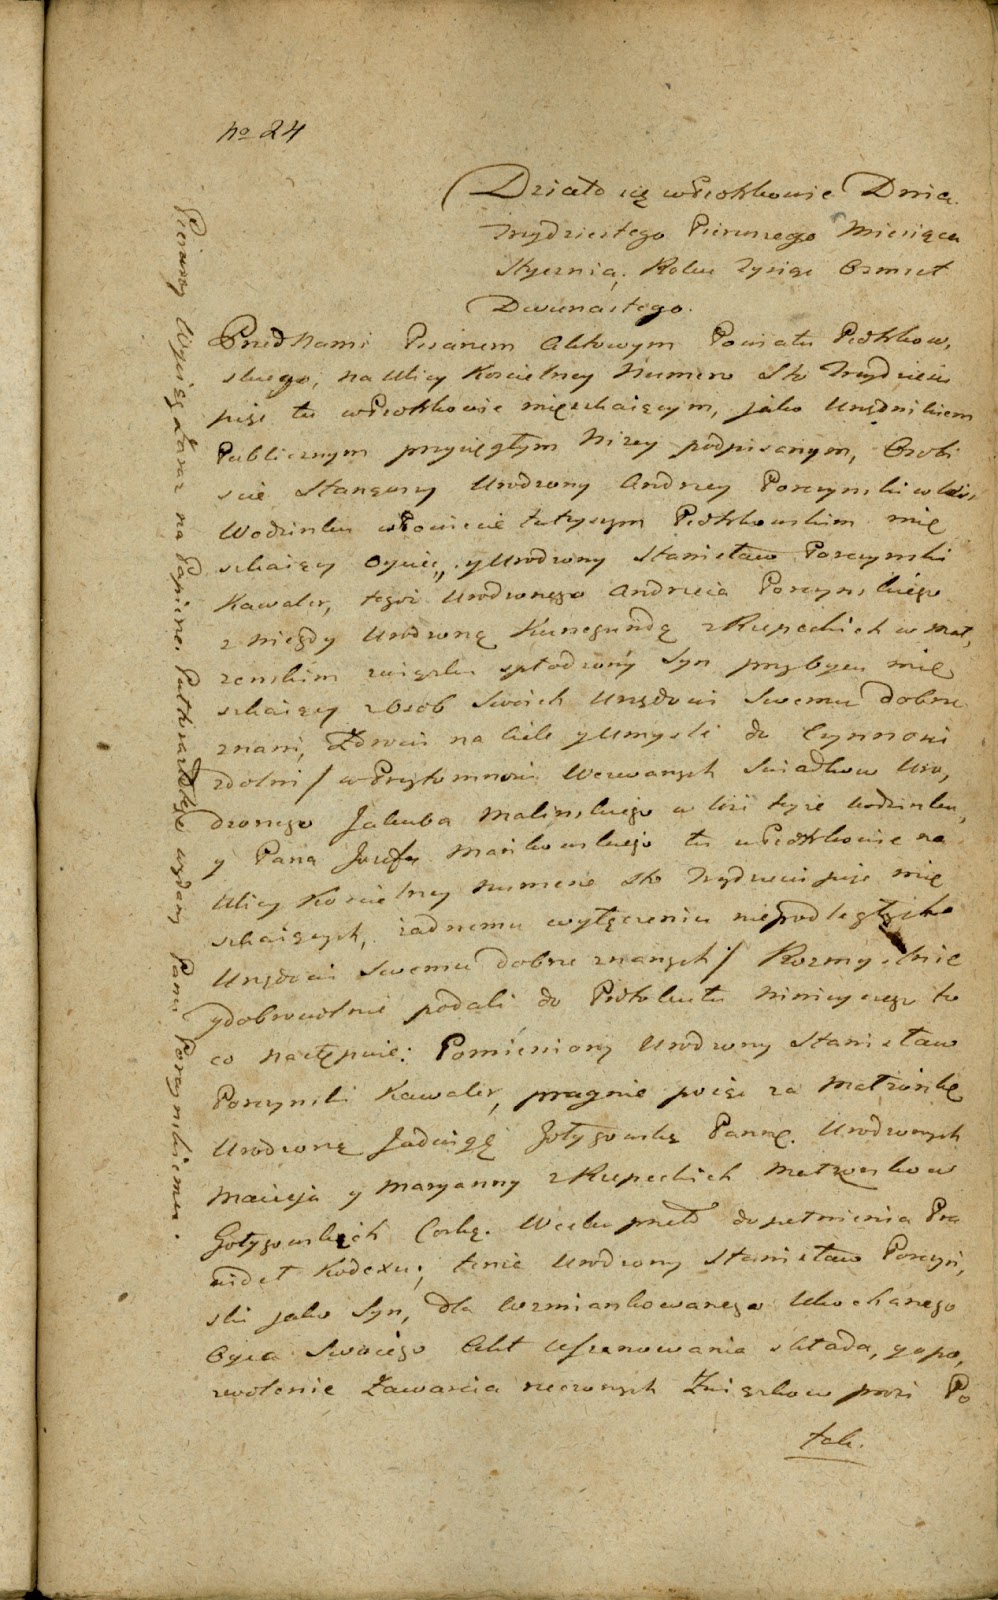 no 24
Działo się w Piotrkowie Dnia
trzydziestego Pierwszego Miesiąca
Stycznia, Roku Tysiąc Osmset
Dwunastego.
Przed Nami Pisarzem Aktowym Powiatu Piotrkow,
skiego, na Ulicy Koscielney Numero Sto Trzydzieści
pięć tu w Piotrkowie mięszkaiącym, jako Urzędnikiem
Publicznym przysięgłym Niżey podpisanym, Osobi
scie Stanąwszy Urodzony Andrzey Porczynski w Wsi,
Wodzinku w Powiecie tuteyszym Piotrkowskim mię
szkaiący Oyciec, y Urodzony Stanisław Porczynski
Kawaler, tegoż Urodzonego Andrzeia Porczynskiego
z niegdy Urodzoną Kunegundą z Rupeckich w Mał,
żenskim związku spłodzony Syn przy Oycu mię
szkaiący z Osób Swoich Urzędowi Swemu dobrze
znani, Zdrowi na Ciele y Umyśle do Czynności
zdolni / w Przytomności Wezwanych Swiadkow Uro,
dzonego Jakuba Malinskiego w Wsi teyże Wodzinku,
y Pana Józefa Mańkowskiego tu w Piotrkowie na
Ulicy Koscielney numero sto trzydzieści pięć mię
szkaiących, żadnemu wyłączeniu niepodległych
Urzędowi Swemu dobrze znanych / Rozmyślnie
y dobrowolnie podali do Protokułu Ninieyszego to
co następuie: Pomieniony Urodzony Stanisław
Porczynski Kawaler, pragnie poiąć za Małżonkę
Urodzoną Jadwigę Gołygowską Pannę. Urodzonych
Macieja y Maryanny z Rupeckich Małżonkow
Gołygowskich Corkę. W celu przeto dopełnienia Pra
wideł Kodexu, tenże Urodzony Stanisław Porczyń,
ski jako Syn, dla Wzmiankowanego Ukochanego
Oyca Swoiego Akt Uszanowania składa, y o po,
zwolenie Zawarcia rzeczonych Związkow prosi Po
tak.
Pierwszy Wypis Zaraz na Papierze Półtorazłotego wydany Panu Porczynskiemu.